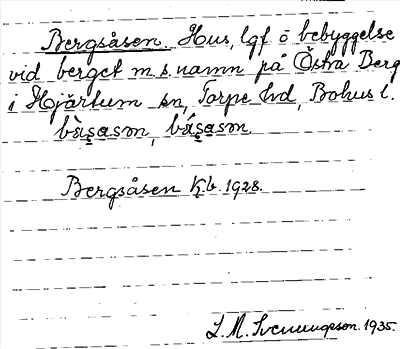 Bergsåsen. Hus, lgf ō bebyggelse
vid berget m. s. namn på Östra Berg
i Hjärtum sn, Torpe hd, Bohus l.
bàs̬ason, bás̬ason
Bergsåsen Kb. 1928.
L. M. Svenungsson. 1935.